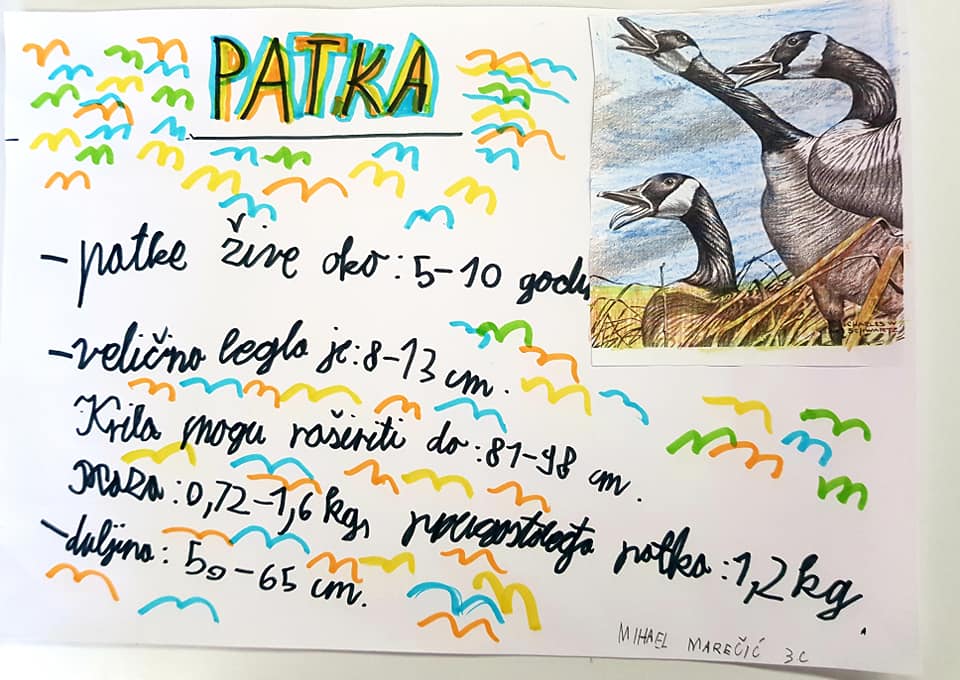 PATKA
- patke žive oko: 5-10 godi
- velično legla je: 8-13 cm.
Krila mogu raširiti do: 81-98 cm.
masa: 0,72-1,6 kg, patka: 1,2 kg.
- duljina: 50-65 cm.
CHARLES W.
SCHWARTZ
MIHAEL MAREČIĆ 3C